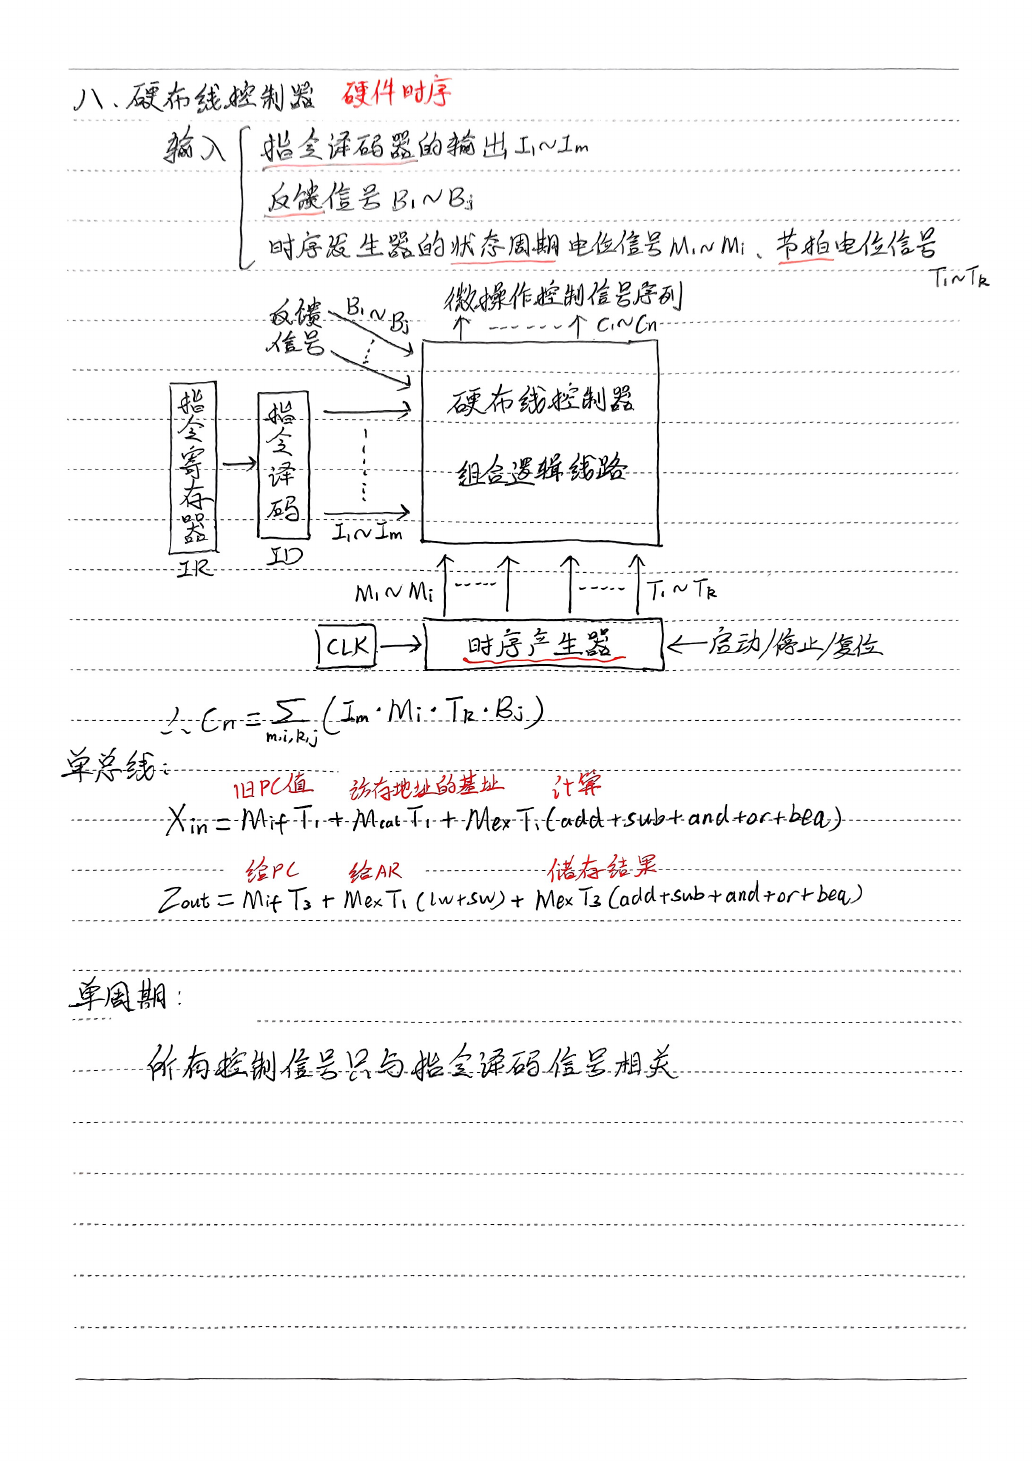 八、硬布线控制器 硬件时序
输入 指令译码器的输出 I₁~Iₘ
反馈信号 B₁~Bⱼ
时序发生器的状态周期电位信号 M₁~Mᵢ、节拍电位信号
T₁~Tₖ
微操作控制信号序列
反馈 B₁~Bⱼ
信号
C₁~Cₙ
硬布线控制器
组合逻辑线路
指令寄存器
指令译码
I₁~Iₘ
IR
ID
M₁~Mᵢ
T₁~Tₖ
CLK
时序产生器
启动/停止/复位
∴ Cₙ = ∑ (Iₘ·Mᵢ·Tₖ·Bⱼ)
m,i,k,j
单总线:
旧PC值 访存地址的基址 计算
Xin = Mif T₁ + Mcal T₁ + Mex T₁(add+sub+and+or+beq)
给PC 给AR 储存结果
Zout = Mif T₃ + Mex T₁(lw+sw) + Mex T₃(add+sub+and+or+beq)
单周期:
所有控制信号只与指令译码信号相关